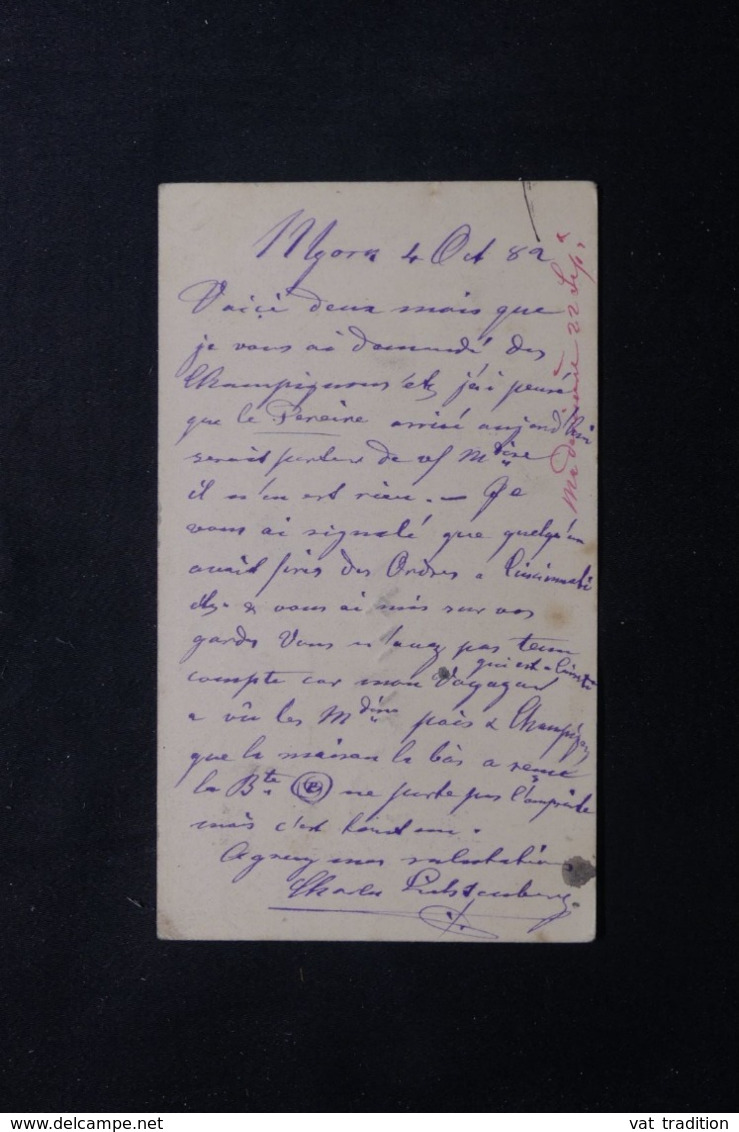 NYork 4 Oct 82
Voiçi deux mois que
je vous ai demandé des
Champignons etc j'ai pensé
que le Pereire arrivé aujourd'hui
serait porteur de vs/ Mdise
il n'en est rien. — Je
vous ai signalé que quelqu'un
avait pris des Ordres a Cincinnati
& vous ai mis sur vos
gardes Vous n'avez pas tenu
compte car mon Voyageur
qui est a
a vu les Mdises pois & Champignons
que la maison la bàs a
la Bte (B) ne porte pas l'empreinte
mais c'est tout un.
Agreez mes salutations
Charles
22 Sept
vat tradition